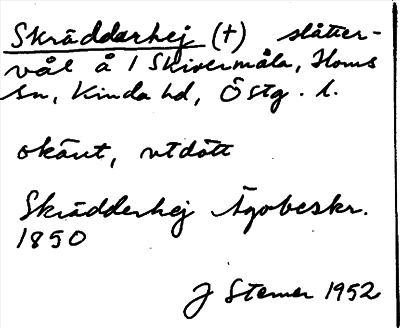 Skrädderhej (†) slåtter-
vål å 1 Skivermåla, Horns
sn, Kinda hd, Östg. l.
okänt, utdött
Skrädderhej Ägobeskr.
1850
J Stemer 1952